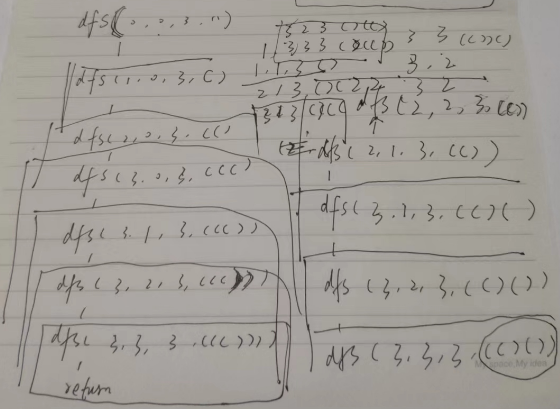 dfs(0,0,3,"")
dfs(1,0,3,()
dfs(2,0,3,(()
dfs(3,0,3,((()
dfs(3,1,3,((()))
dfs(3,2,3,((())))
dfs(3,3,3,((())))
return
3 2 3 ()(()
3 3 3 ()(())
3 3 (())()
1,1,3()
3,2
2 1 3,()(
2,2
3 2
3 1 3 ()((
dfs(2,2,3,(())
dfs(2,1,3,(()
dfs(3,1,3,(()()
dfs(3,2,3,(()())
dfs(3,3,3,(()())